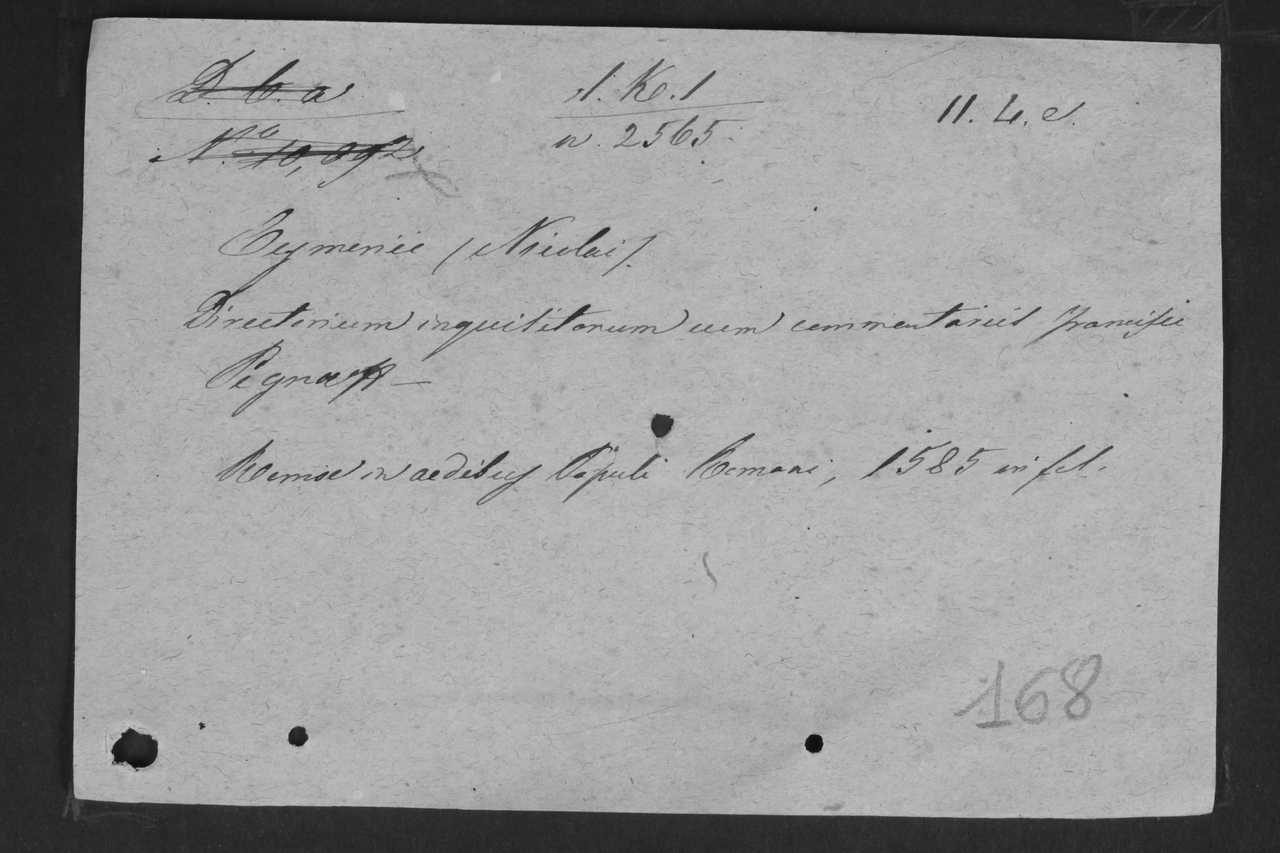 D. b. a
1. K. 1
11. L. e.
No. 10,892
n. 2565
Eymeric (Nicolai).
Directorium inquisitorum cum commentariis Francisci
Pegnae —
Romae in aedibus Populi Romani, 1585 in fol.
168